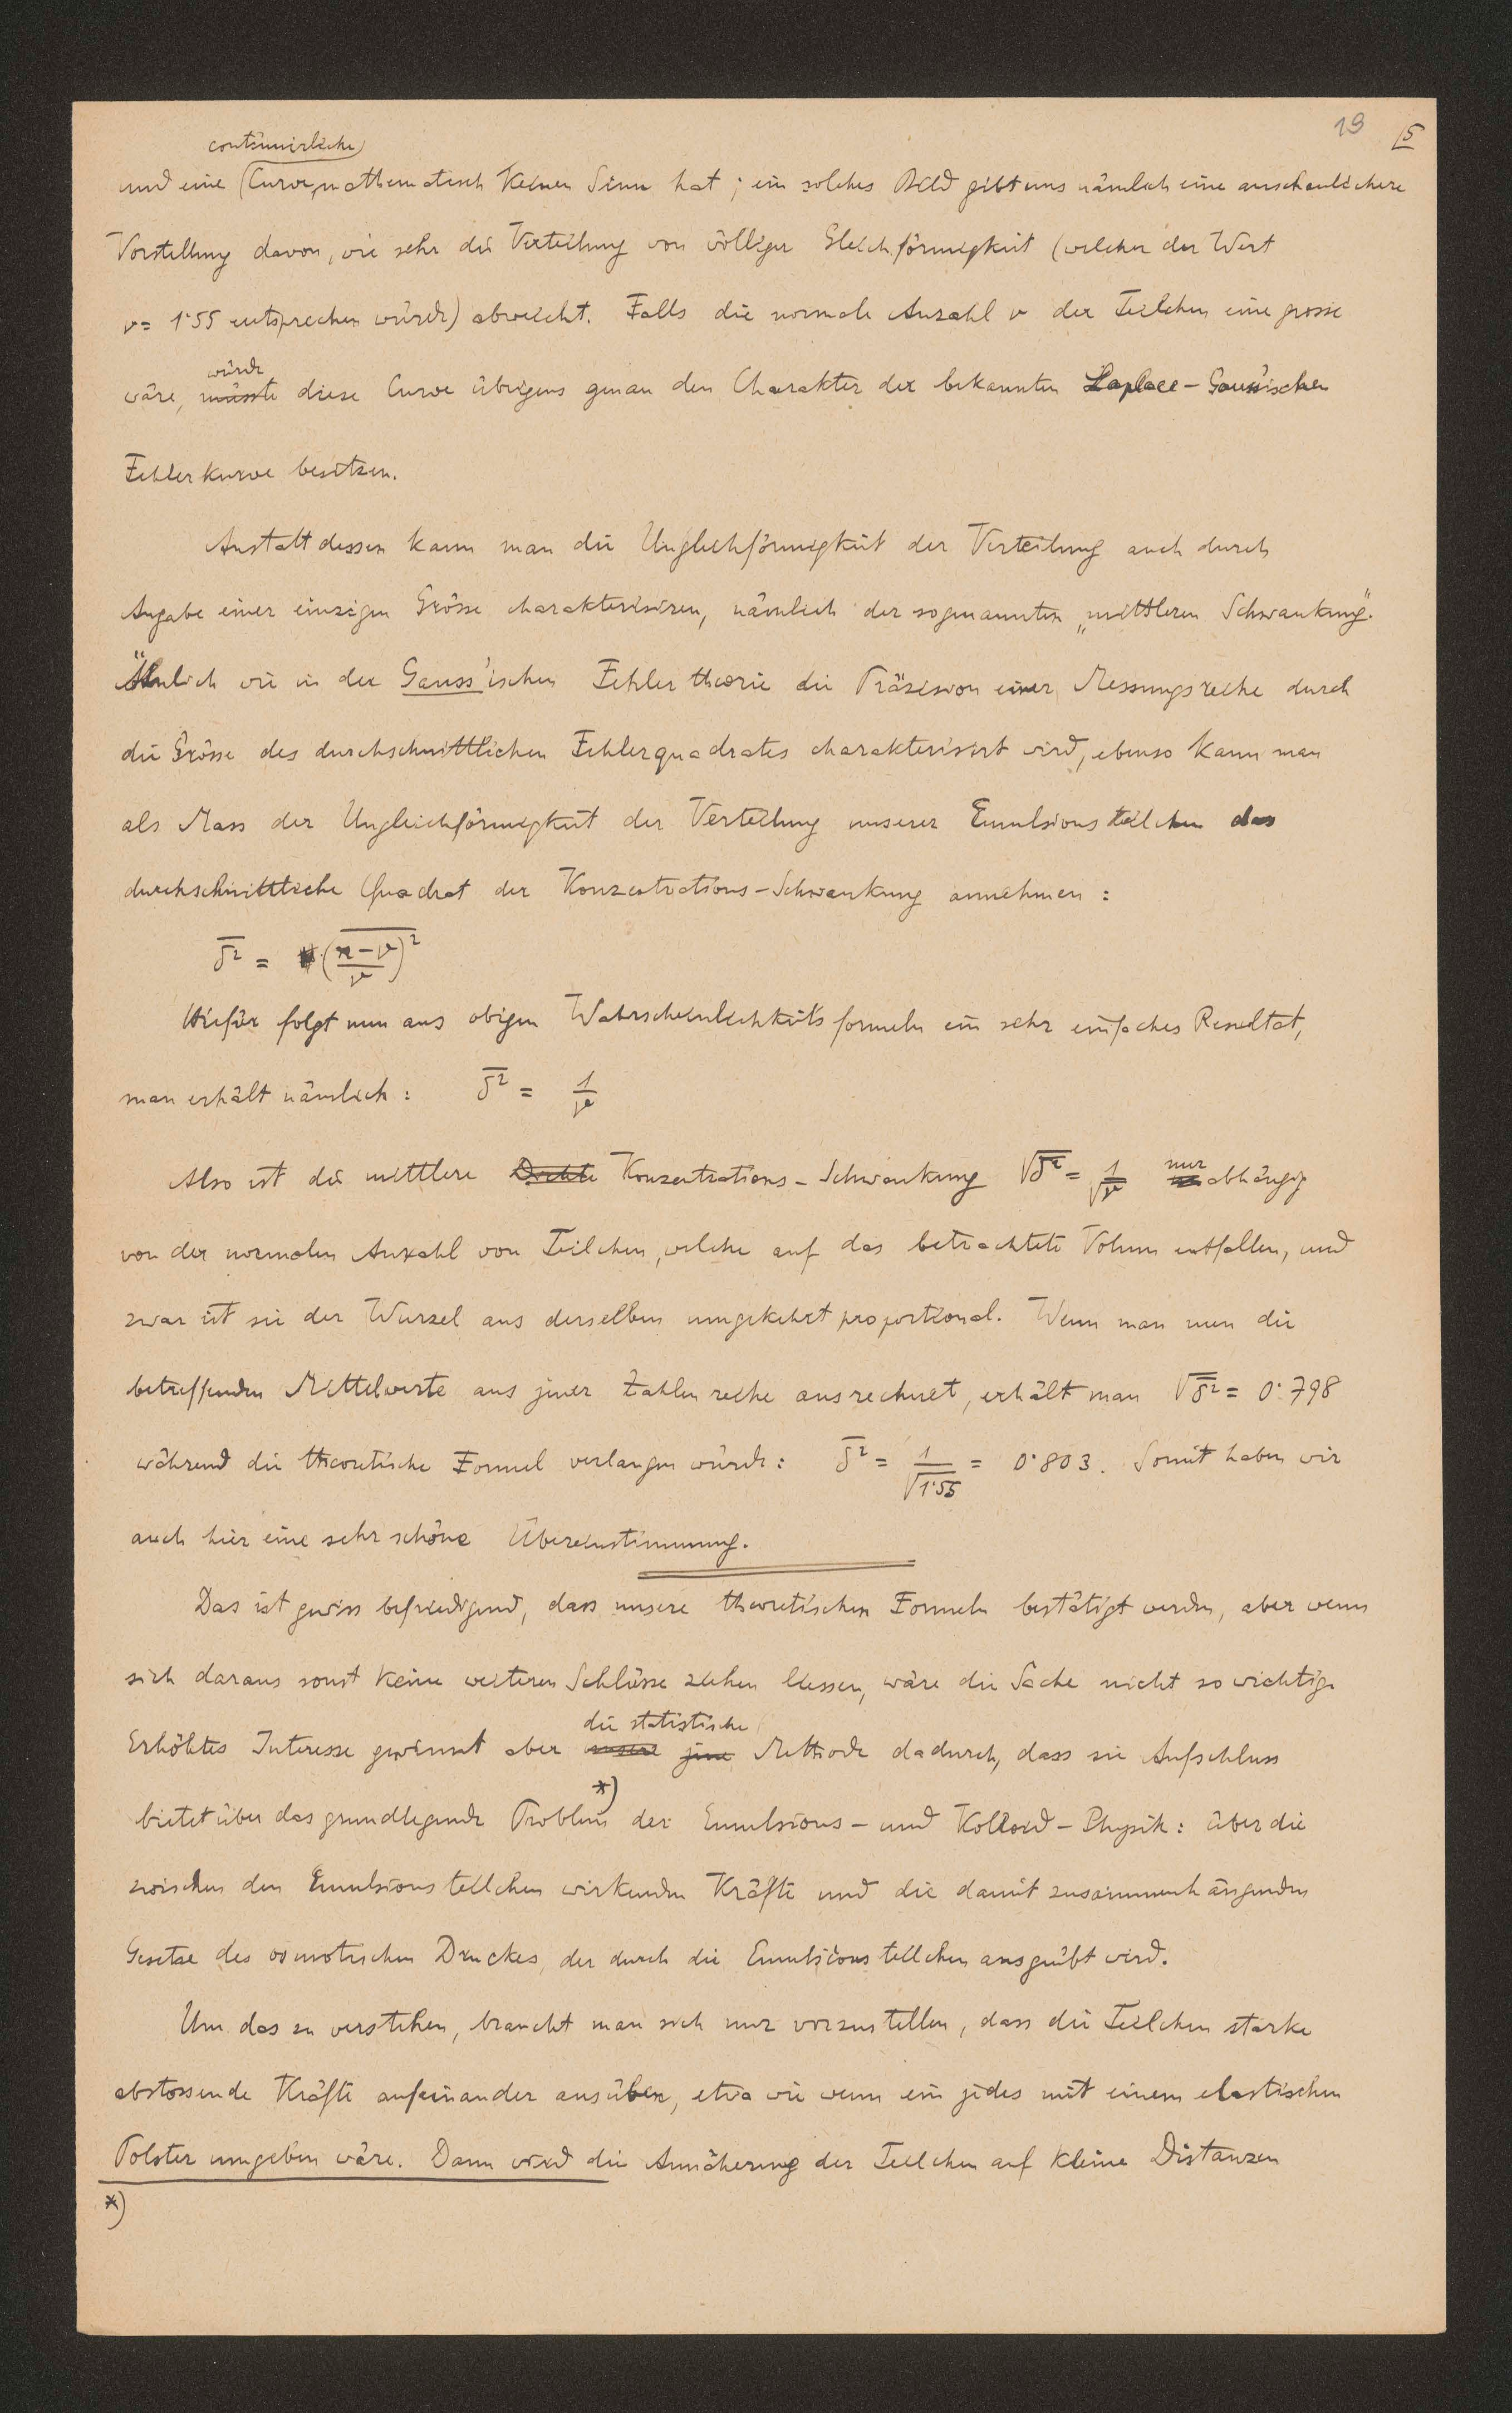 19 5
continuirliche
und eine Curve mathematisch keinen Sinn hat; ein solches Bild gibt uns nämlich eine anschaulichere
Vorstellung davon, wie sehr die Verteilung von völliger Gleichförmigkeit (welcher der Wert
ν = 1·55 entsprechen würde) abweicht. Falls die normale Anzahl ν der Teilchen eine grosse
würde
wäre, müsste diese Curve übrigens genau den Charakter der bekannten Laplace-Gauss'ischen
Fehlerkurve besitzen.
Anstatt dessen kann man die Ungleichförmigkeit der Verteilung auch durch
Angabe einer einzigen Grösse charakterisiren, nämlich der sogenannten „mittleren Schwankung".
Ähnlich wie in der Gauss'ischen Fehlertheorie die Präzision einer Messungsreihe durch
die Grösse des durchschnittlichen Fehlerquadrates charakterisirt wird, ebenso kann man
als Mass der Ungleichförmigkeit der Verteilung unserer Emulsionsteilchen das
durchschnittliche Quadrat der Konzentrations-Schwankung annehmen:
δ̅² = \overline{(\frac{n-ν}{ν})²}
Hiefür folgt nun aus obigen Wahrscheinlichkeitsformeln ein sehr einfaches Resultat,
man erhält nämlich: δ̅² = 1/ν
Also ist die mittlere Dichte Konzentrations-Schwankung √δ̅² = 1/√ν nur abhängig
von der normalen Anzahl von Teilchen, welche auf das betrachtete Volum entfallen, und
zwar ist sie der Wurzel aus derselben umgekehrt proportional. Wenn man nun die
betreffenden Mittelwerte aus jener Zahlenreihe ausrechnet, erhält man √δ̅² = 0·798
während die theoretische Formel verlangen würde: δ̅² = 1/√1·55 = 0·803. Somit haben wir
auch hier eine sehr schöne Übereinstimmung.
Das ist gewiss befriedigend, dass unsere theoretischen Formeln bestätigt werden, aber wenn
sich daraus sonst keine weiteren Schlüsse ziehen liessen, wäre die Sache nicht so wichtig.
die statistische
Erhöhtes Interesse gewinnt aber unsere jene Methode dadurch, dass sie Aufschluss
bietet über das grundlegende Problem *) der Emulsions- und Kolloid-Physik: über die
zwischen den Emulsionsteilchen wirkenden Kräfte und die damit zusammenhängenden
Gesetze des osmotischen Druckes, der durch die Emulsionsteilchen ausgeübt wird.
Um das zu verstehen, braucht man sich nur vorzustellen, dass die Teilchen starke
abstossende Kräfte aufeinander ausüben, etwa wie wenn ein jedes mit einem elastischen
Polster umgeben wäre. Dann wird die Annäherung der Teilchen auf kleine Distanzen
*)